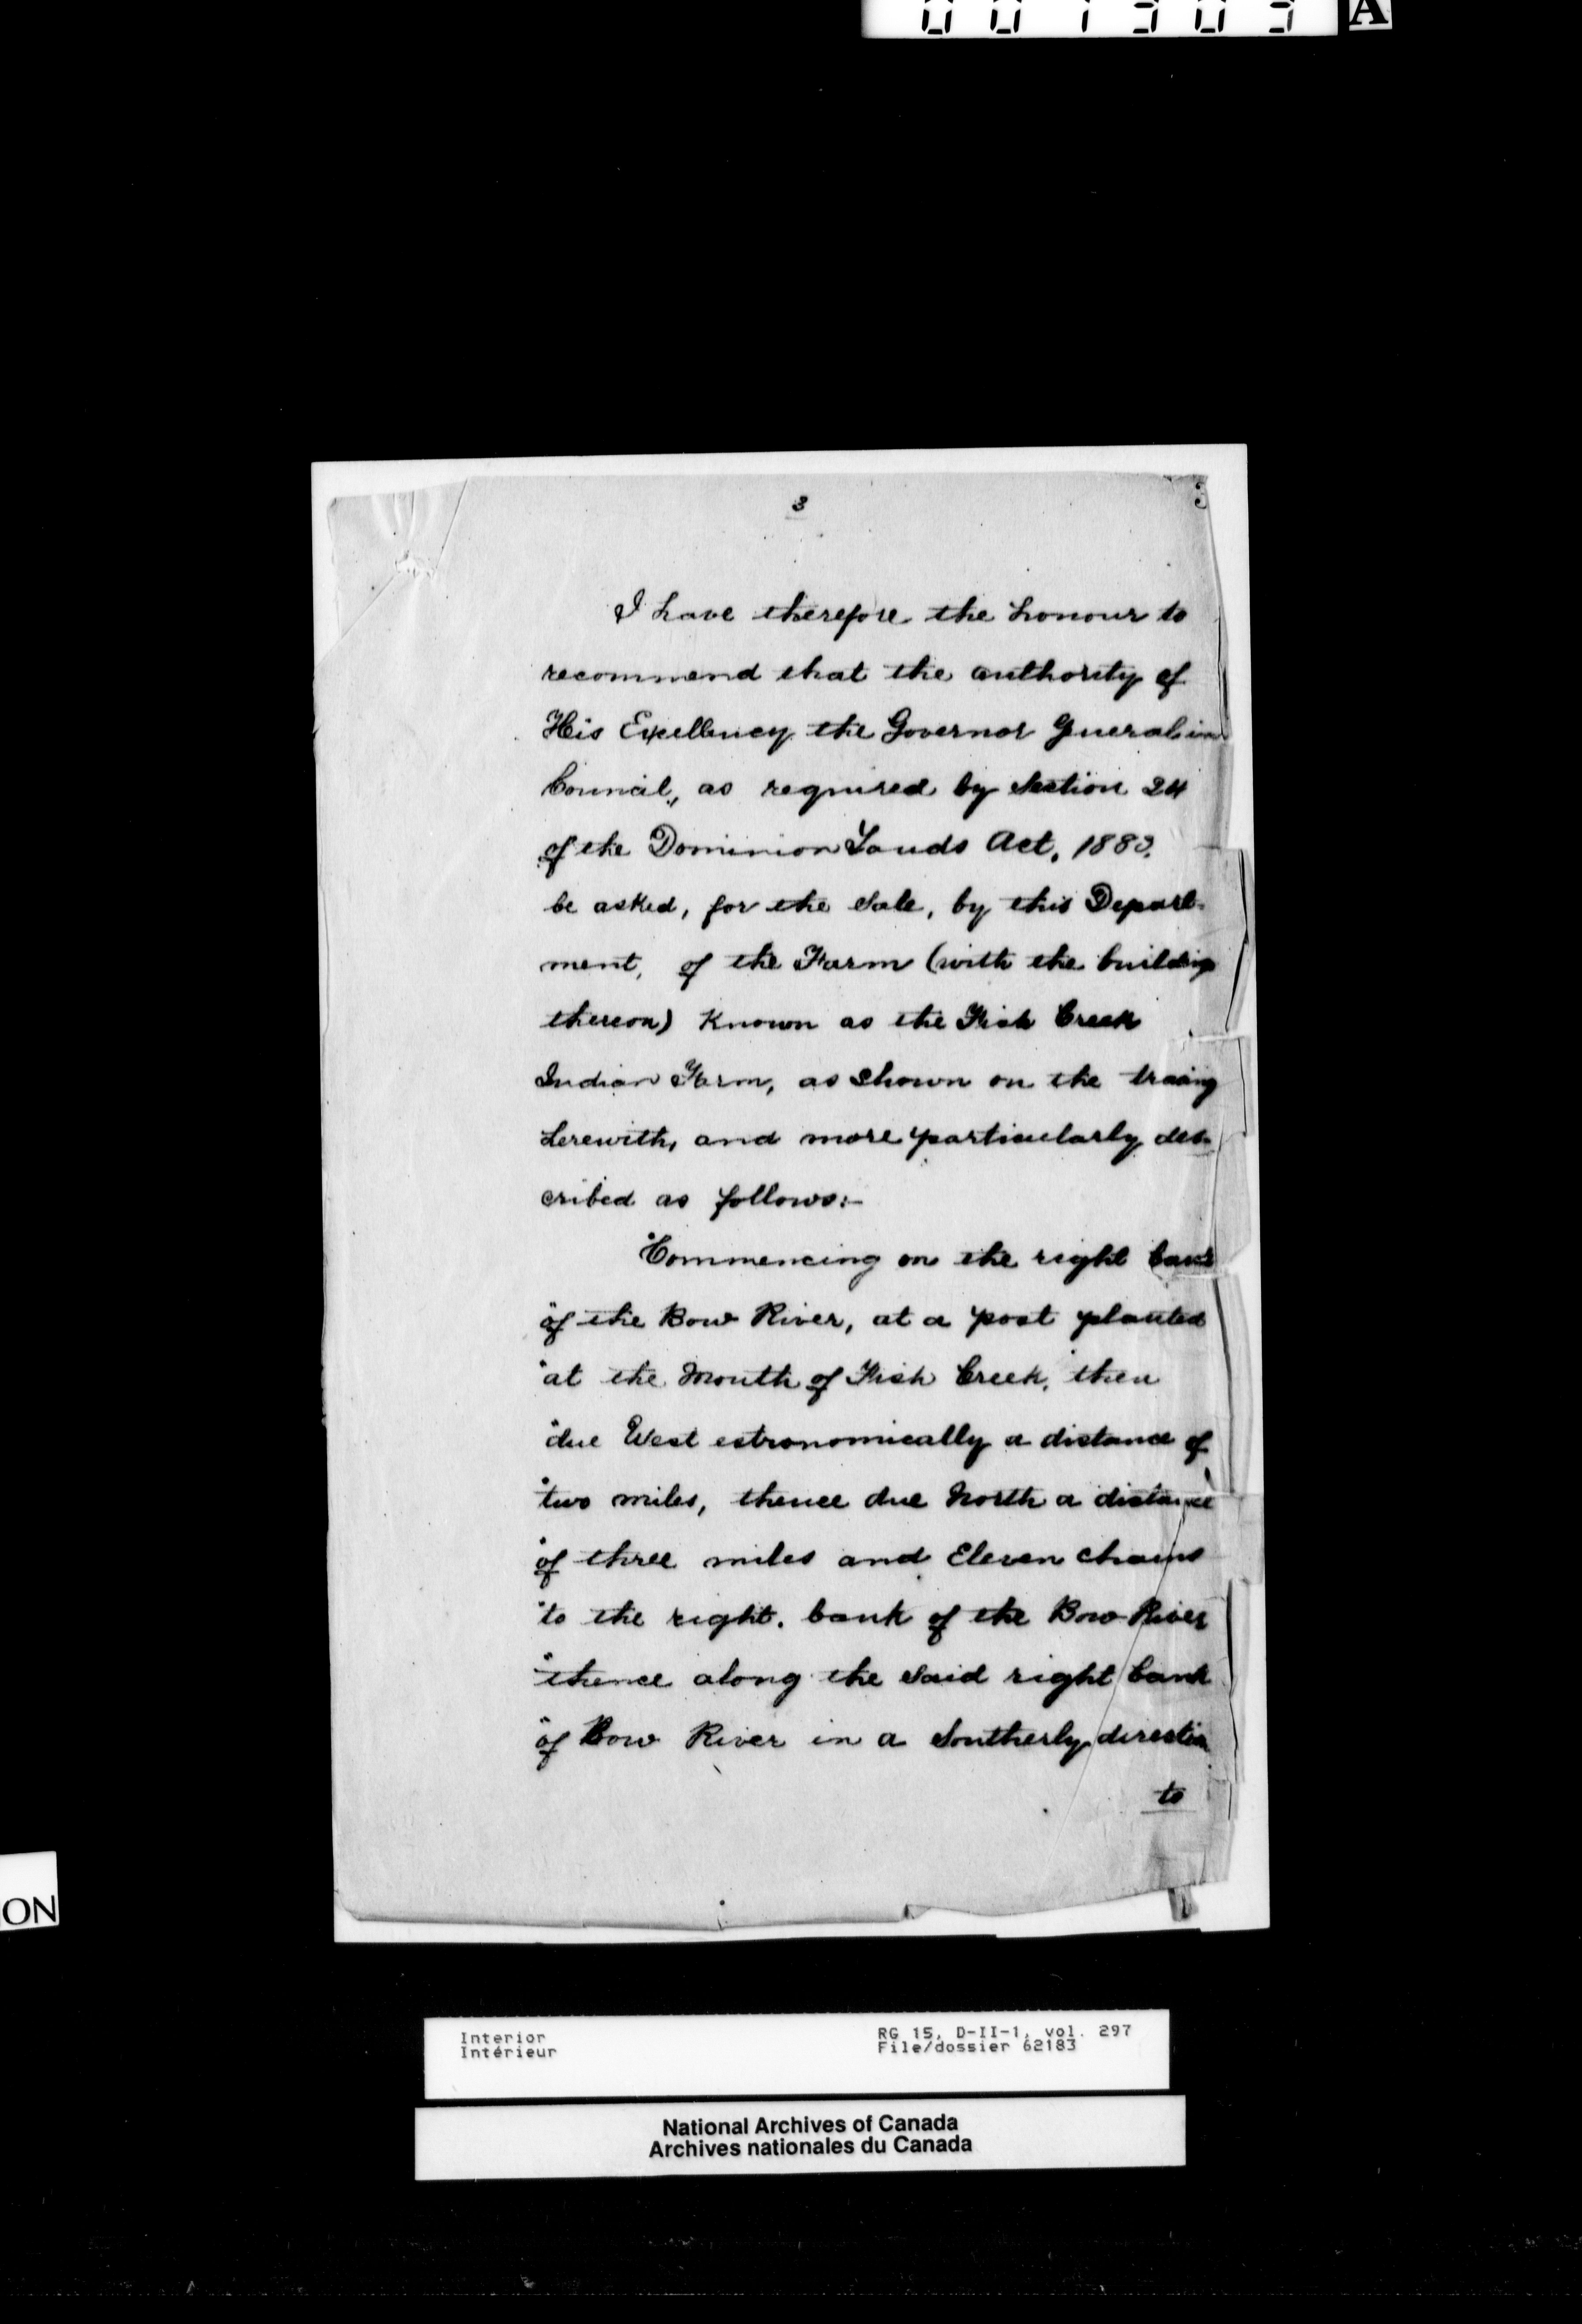 3
I have therefore the honour to
recommend that the authority of
His Excellency the Governor General in
Council, as required by Section 24
of the Dominion Lands Act, 1883.
be asked, for the Sale, by this Depart-
ment, of the Farm (with the buildings
thereon) Known as the Fish Creek
Indian Farm, as Shown on the tracing
herewith, and more particularly des-
cribed as follows:-
"Commencing on the right bank
"of the Bow River, at a post planted
"at the Mouth of Fish Creek, then
"due West estronomically a distance of
"two miles, thence due North a distance
"of three miles and Eleven chains
"to the right. bank of the Bow River
"thence along the Said right bank
"of Bow River in a Southerly direction
to
ON
A
Interior
Intérieur
RG 15, D-II-1, vol. 297
File/dossier 62183
National Archives of Canada
Archives nationales du Canada